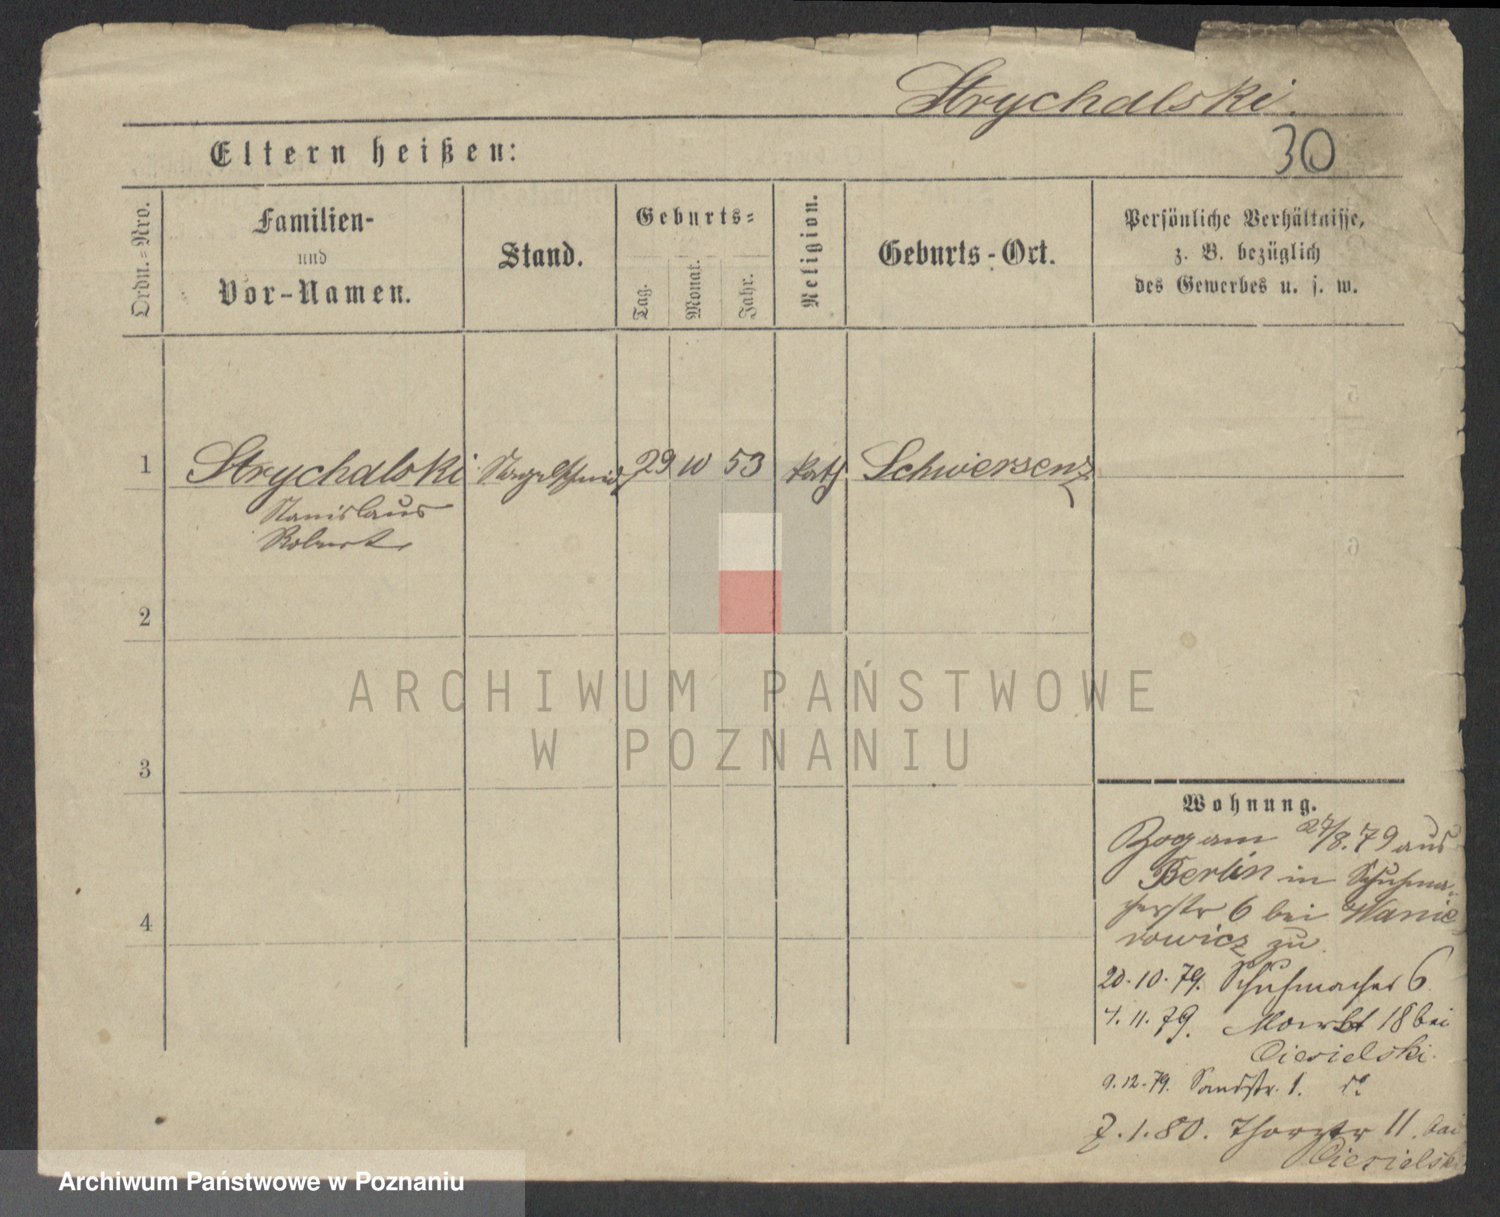 Strychalski.
30
Eltern heißen:
Ordn.=Nro.
Familien-
und
Vor-Namen.
Stand.
Geburts=
Tag.
Monat.
Jahr.
Religion.
Geburts-Ort.
Persönliche Verhältnisse,
z. B. bezüglich
des Gewerbes u. s. w.
1 Strychalski Nagelschmid 29 10 53 kath. Schwersenz
Stanislaus
Robert
2
3
4
ARCHIWUM PAŃSTWOWE
W POZNANIU
Wohnung.
Zog am 27/8.79 aus
Berlin in Schuhma-
cherstr 6 bei
zu.
20.10.79. Schuhmacher 6.
4.11.79. Markt 18 bei
Ciesielski.
9.12.79. Sandstr. 1. do
7.1.80. Thorstr 11. bei
Ciesielski
Archiwum Państwowe w Poznaniu